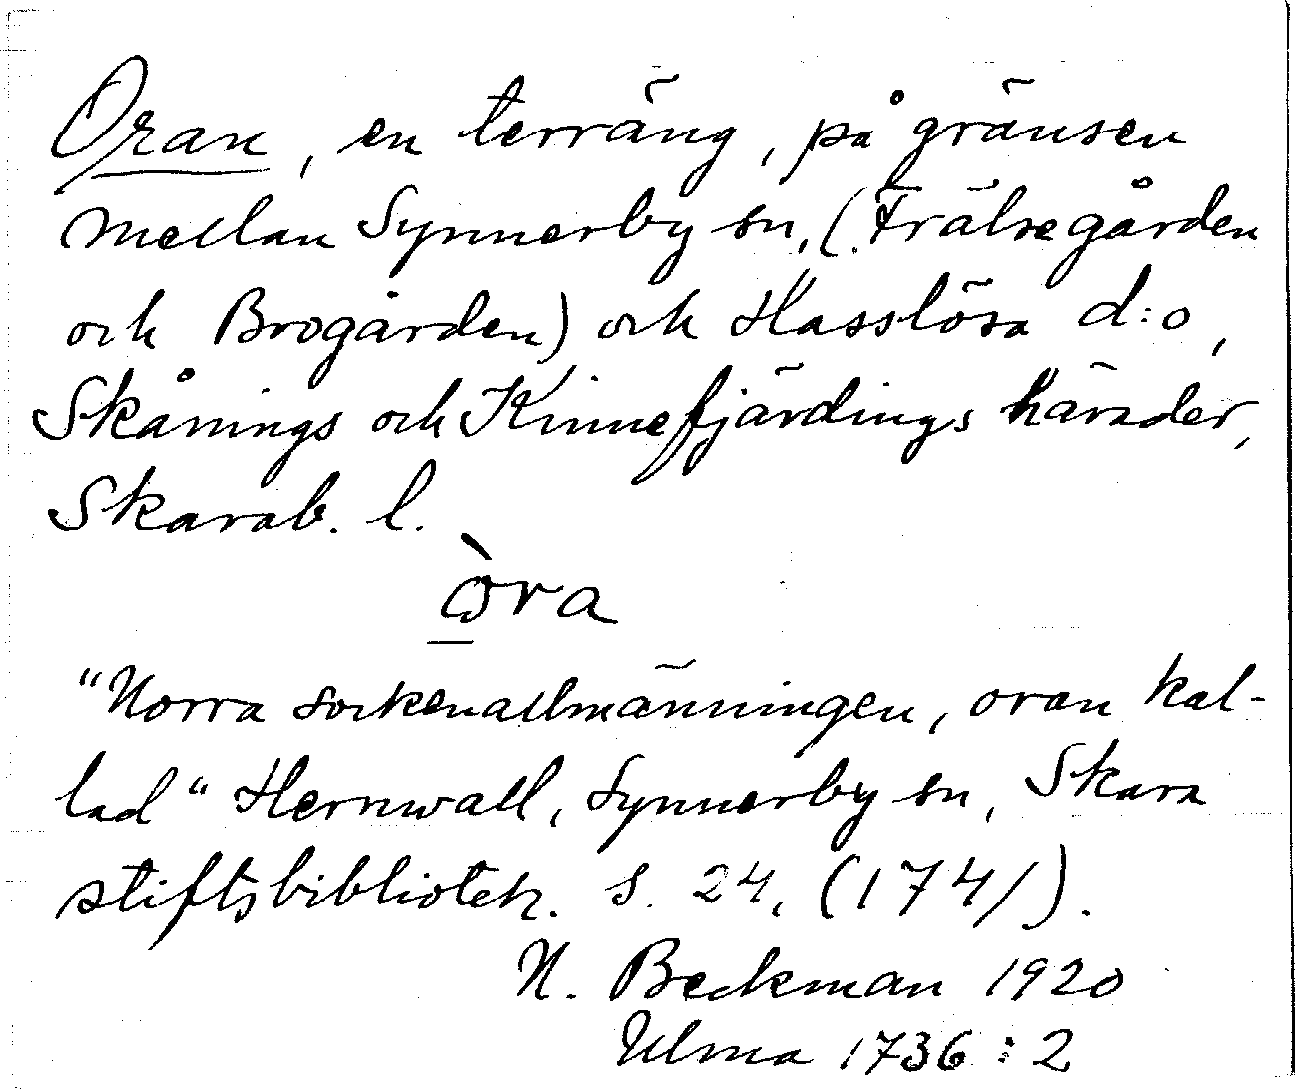 Oran, en terräng, på gränsen
mellan Synnerby sn, (Frälsegården
och Brogården) och Hasslösa d:o,
Skånings och Kinnefjärdings härader,
Skarab. l.
òra
"Norra sockenallmänningen, oran kal-
lad" Hernwall, Synnerby sn, Skara
stiftsbibliotek. s. 24. (1741).
N. Beckman 1920
Ulma 1736 : 2